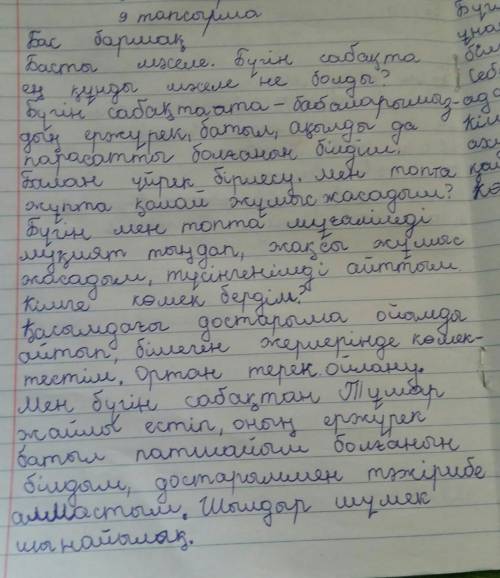 9 тапсырма
Бас бармақ
Басты мәселе. Бүгін сабақта
ең құнды мәселе не болды?
Бүгін сабақта ата-бабаларымыз-
дың ержүрек, батыл, ақылды да
парасатты болғанын білдім.
Балан үйрек бірлесу. Мен топта
жұпта қалай жұмыс жасадым?
Бүгін мен топта мұғалімді
мұқият тыңдап, жақсы жұмыс
жасадым, түсінгенімді айттым
Кімге көмек бердім?
Қасымдағы достарыма ойымды
айтып, білмеген жерлерінде көмек-
тестім. Ортан терек ойлану.
Мен бүгін сабақтан Тұмар
жайлы естіп, оның ержүрек
батыл патшайым болғанын
білдым, достарыммен тәжірибе
алмастым. Шылдыр шүмек
шынайылық.